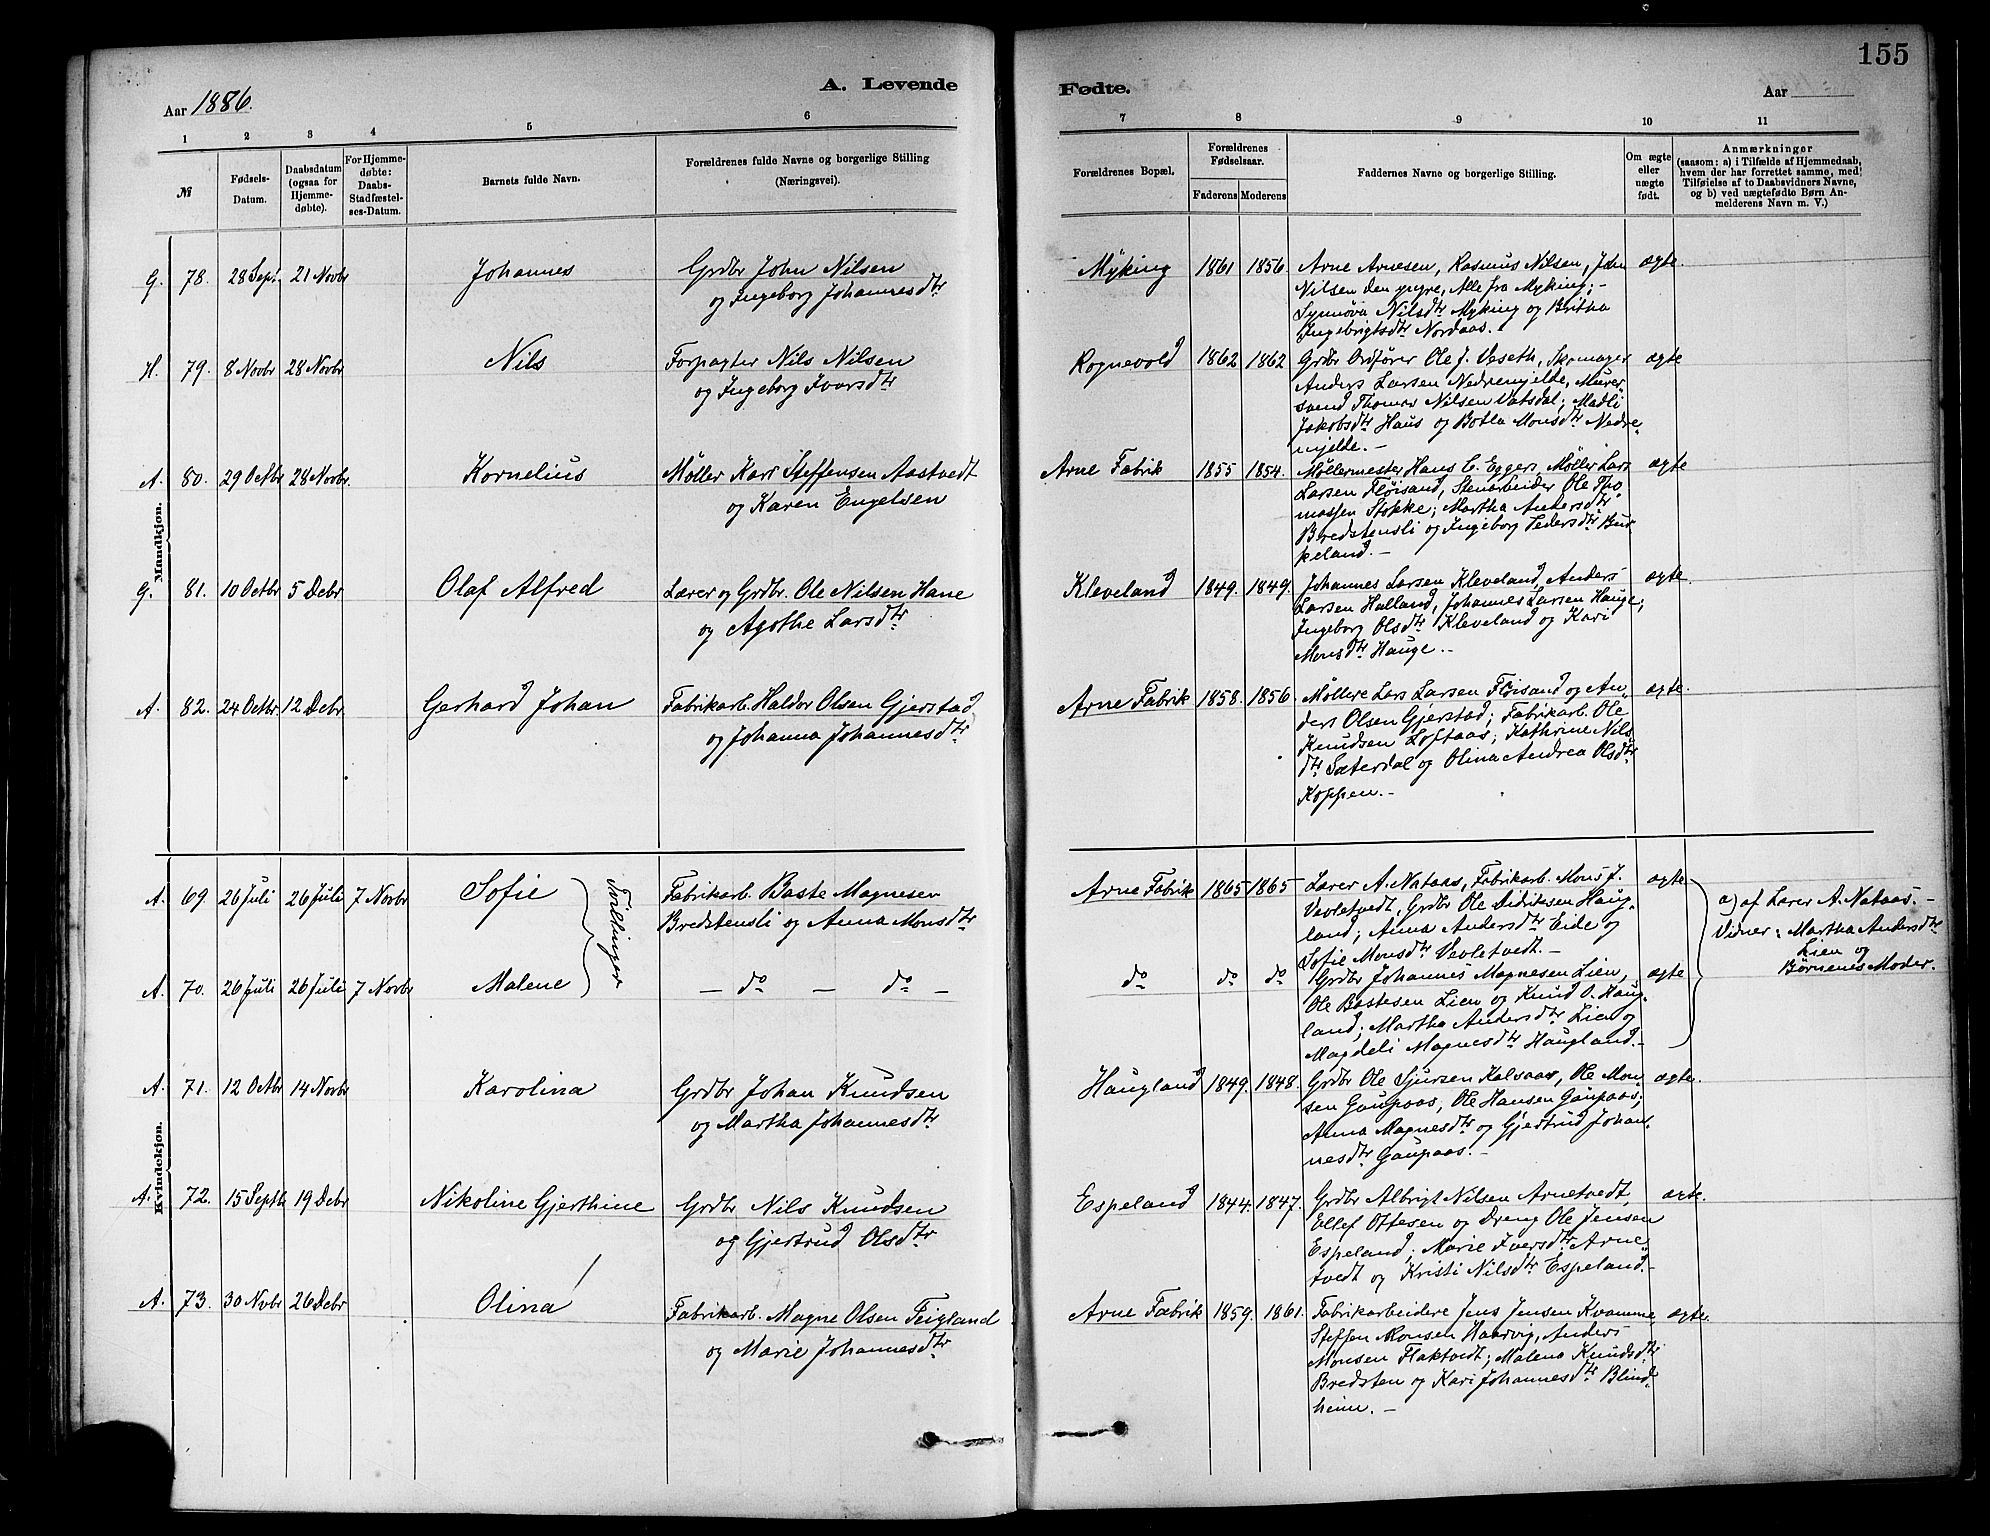 155
Aar 1886.
A. Levende
Fødte.
Aar
1 2 3 4 5 6
7 8 9 10 11
№
Fødsels-
Datum.
Daabsdatum
(ogsaa for
Hjemme-
døbte).
For Hjemme-
døbte:
Daabs-
Stadfæstel-
ses-Datum.
Barnets fulde Navn.
Forældrenes fulde Navne og borgerlige Stilling
(Næringsvei).
Forældrenes Bopæl.
Forældrenes
Fødselsaar.
Faderens Moderens
Faddernes Navne og borgerlige Stilling.
Om ægte
eller
uægte
født.
Anmærkninger
(saasom: a) i Tilfælde af Hjemmedaab,
hvem der har forrettet samme, med
Tilføielse af to Daabsvidners Navne,
og b) ved uægtefødte Børn An-
melderens Navn m. V.)
Mandkjøn.
G. 78. 28 Sept. 21 Novbr Johannes
Grdbr John Nilsen
og Ingeborg Johannesdtr
Myking 1861 1856
Arne Arnesen, Rasmus Nilsen, John
Nilsen den yngre, Alle fra Myking;-
Synnøva Nilsdtr Myking og Britha
Ingebrigtsdtr Nordaas.
ægte.
H. 79. 8 Novbr 28 Novbr Nils
Forpagter Nils Nilsen
og Ingeborg Iversdtr
Rognevold 1862 1862
Grdbr Ordfører Ole J. Veseth, Skomager
Anders Larsen Nedremjelde, Murer-
svend Thomas Nilsen Vatsdal; Madli
Jakobsdtr Haus og Botla Monsdtr Nedre-
mjelde.-
ægte
A. 80. 29 Octbr 28 Novbr. Kornelius
Møller Karl Steffensen Aastvedt
og Karen Engelsen
Arne Fabrik 1855 1854.
Møllermester Hans C. Eggers, Møller Lars
Larsen Fløisand, Stenarbeider Ole Tho-
massen Stokke; Martha Andersdtr
Bredstensli og Ingeborg Pedersdtr Bur-
keland.-
ægte
G. 81. 10 Octbr 5 Debr Olaf Alfred
Lærer og Grdbr. Ole Nilsen Hane
og Agothe Larsdtr
Kleveland 1849. 1849.
Johannes Larsen Kleveland, Anders
Larsen Halland, Johannes Larsen Hauge;
Ingeborg Olsdtr Kleveland og Kari
Monsdtr Hauge.-
ægte.
A. 82. 24 Octbr. 12 Debr Gerhard Johan
Fabrikarb. Haldor Olsen Gjerstad
og Johanna Johannesdtr
Arne Fabrik 1858. 1856.
Møllere Lars Larsen Fløisand og An-
ders Olsen Gjerstad; Fabrikarb. Ole
Knudsen Loftaas; Kathrine Nils-
dtr Sæterdal og Olina Andrea Olsdtr
Koppen.-
ægte.
Kvindekjøn.
A. 69. 26 Juli 26 Juli 7 Novbr Sofie
Tvillinger
Fabrikarb. Baste Magnesen
Bredstensli og Anna Monsdtr
Arne Fabrik 1865 1865
Lærer A. Nataas, Fabrikarb. Mons J.
Vevletvedt, Grdbr Ole Didriksen Haug-
land; Anna Andersdtr Eide og
Sofie Monsdtr Vevletvedt.-
ægte
a) af Lærer A. Nataas.-
Vidner: Martha Andersdtr
Lien og
Børnenes Moder.
A. 70. 26 Juli 26 Juli 7 Novbr Malene
- do - do -
do do do
Grdbr Johannes Magnesen Lien,
Ole Bastesen Lien og Knud O. Haug-
land; Martha Andersdtr Lien og
Magdeli Magnesdtr Haugland.-
ægte
A. 71. 12 Octbr 14 Novbr Karolina
Grdbr Johan Knudsen
og Martha Johannesdtr
Haugland 1849. 1848.
Grdbr Ole Sjursen Kalsaas, Ole Mon-
sen Gaupaas, Ole Hansen Gaupaas;
Anna Magnesdtr og Gjertrud Johan-
nesdtr Gaupaas.-
ægte.
A. 72. 15 Septbr 19 Debr Nikoline Gjerthine
Grdbr Nils Knudsen
og Gjertrud Olsdtr
Espeland 1844. 1847.
Grdbr Albrigt Nilsen Arnetvedt,
Ellef Ottesen og Dreng Ole Jensen
Espeland; Marie Iversdtr Arne-
tvedt og Kristi Nilsdtr Espeland.-
ægte.
A. 73. 30 Novbr 26 Debr Olina
Fabrikarb. Magne Olsen Teigland
og Marie Johannesdtr
Arne Fabrik 1859. 1861.
Fabrikarbeidere Jens Jensen Kvamme,
Steffen Monsen Haarvig, Anders
Monsen Flaktvedt; Malena Knudsdtr
Bredsten og Kari Johannesdtr Blind-
heim.-
ægte.